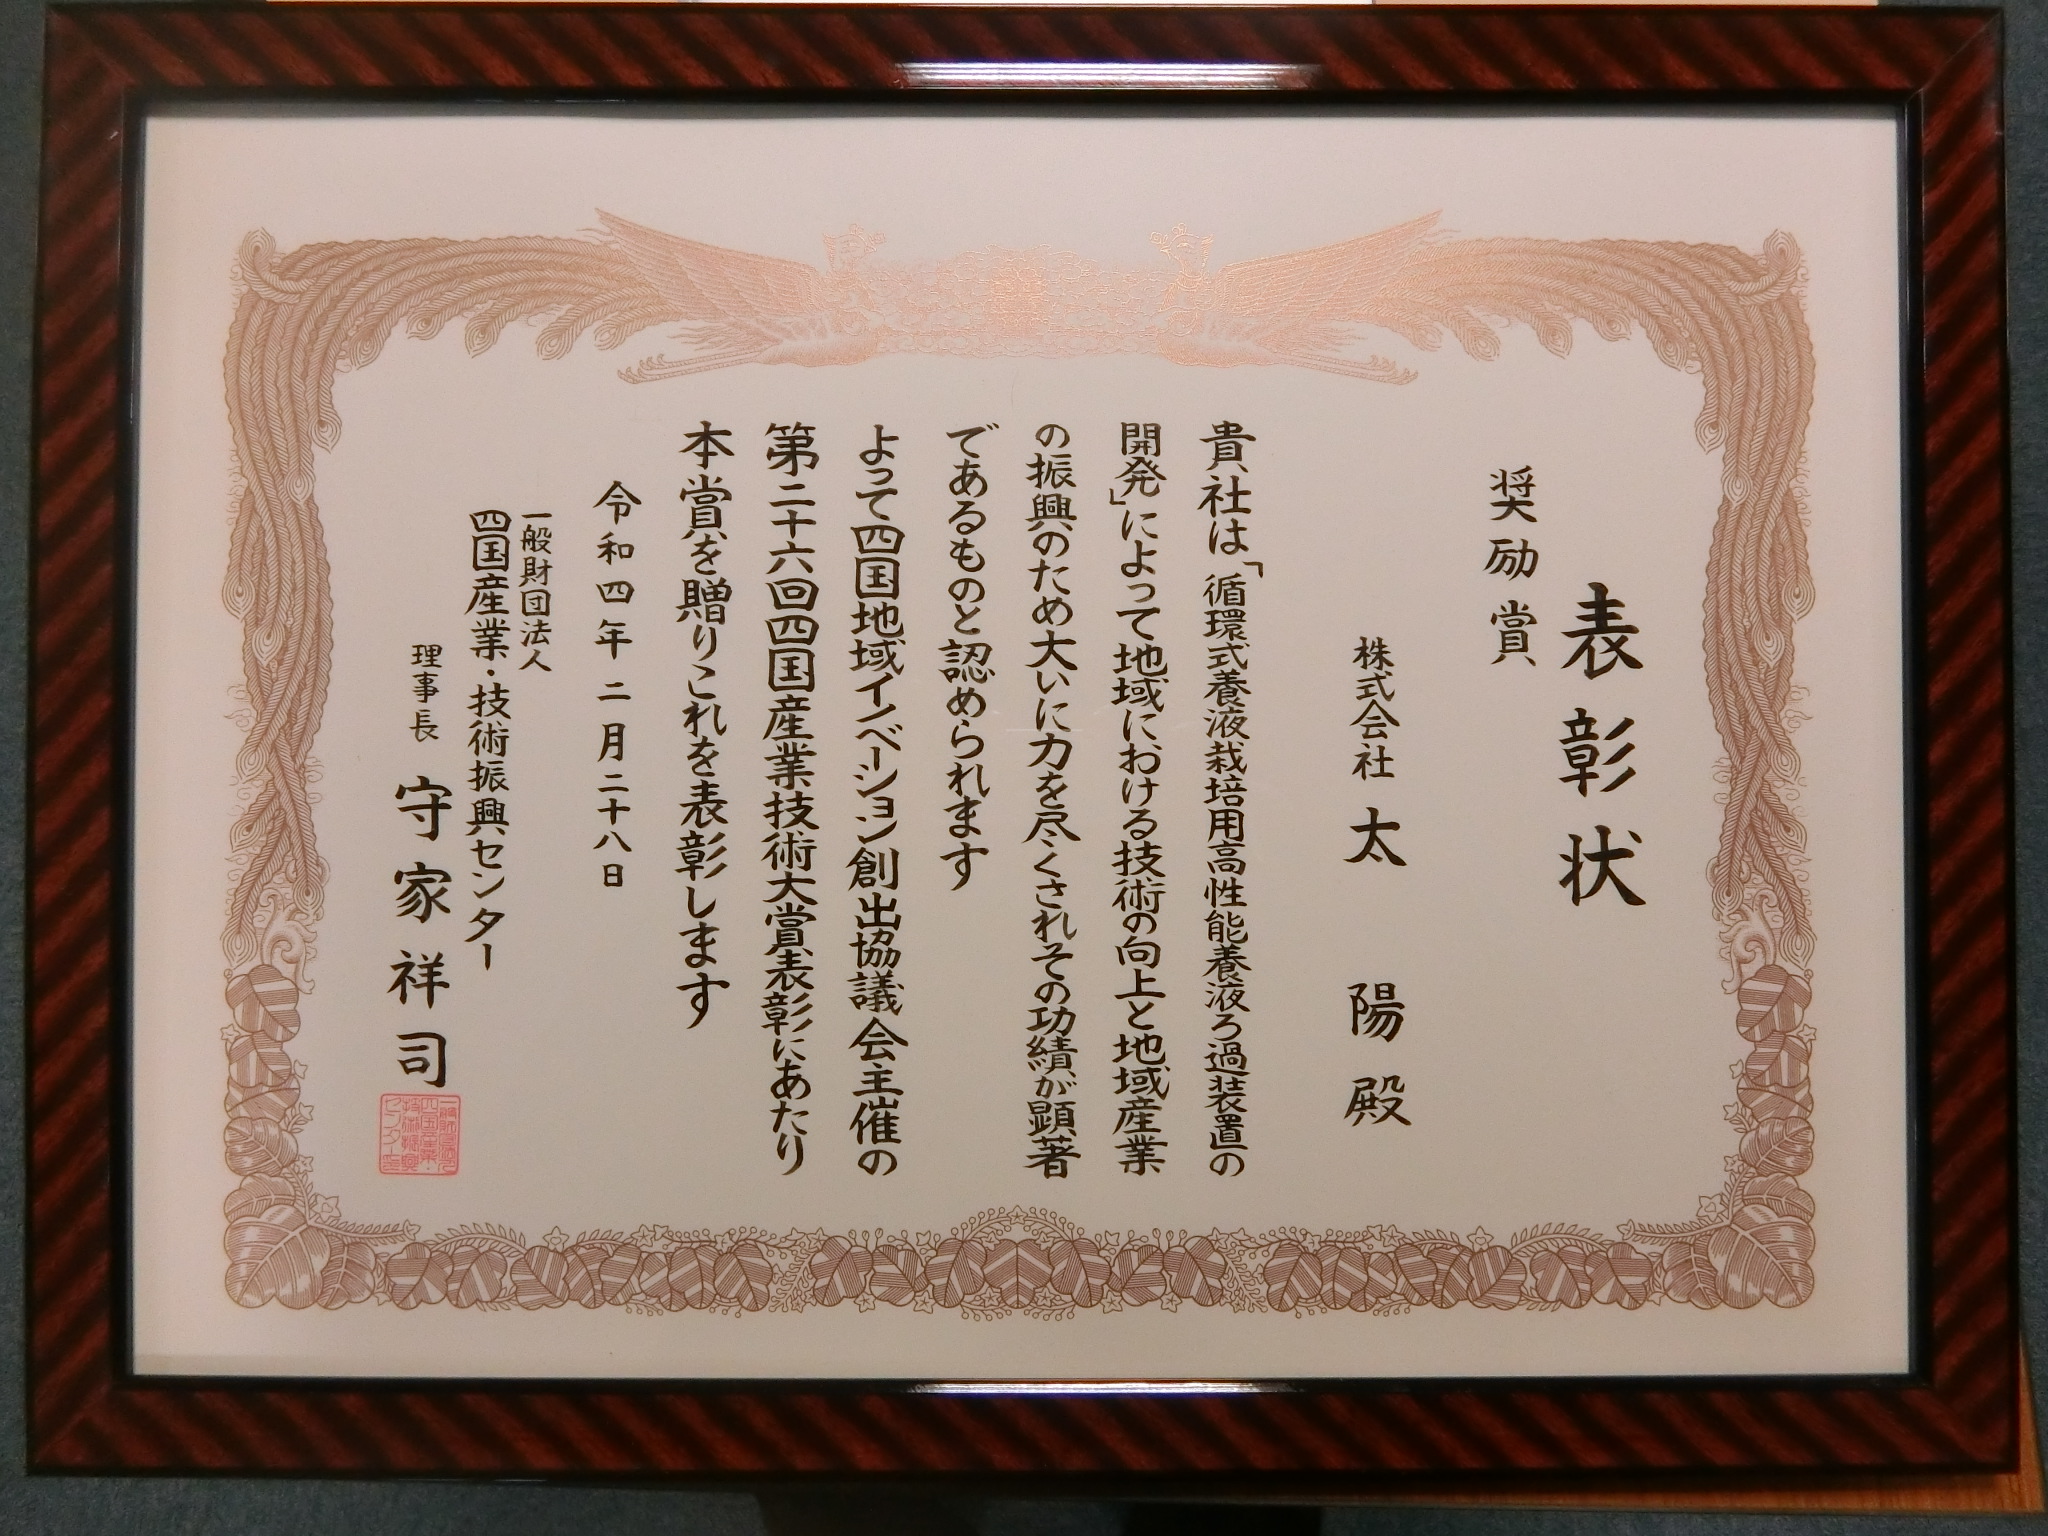 表彰状
奨励賞
株式会社 太陽殿
貴社は、「循環式養液栽培用高性能養液ろ過装置の
開発」によって地域における技術の向上と地域産業
の振興のため大いに力を尽くされその功績が顕著
であるものと認められます
よって四国地域イノベーション創出協議会主催の
第二十六回四国産業技術大賞表彰にあたり
本賞を贈りこれを表彰します
令和四年二月二十八日
一般財団法人
四国産業・技術振興センター
理事長 守家祥司
一般財団法人四国産業・技術振興センター